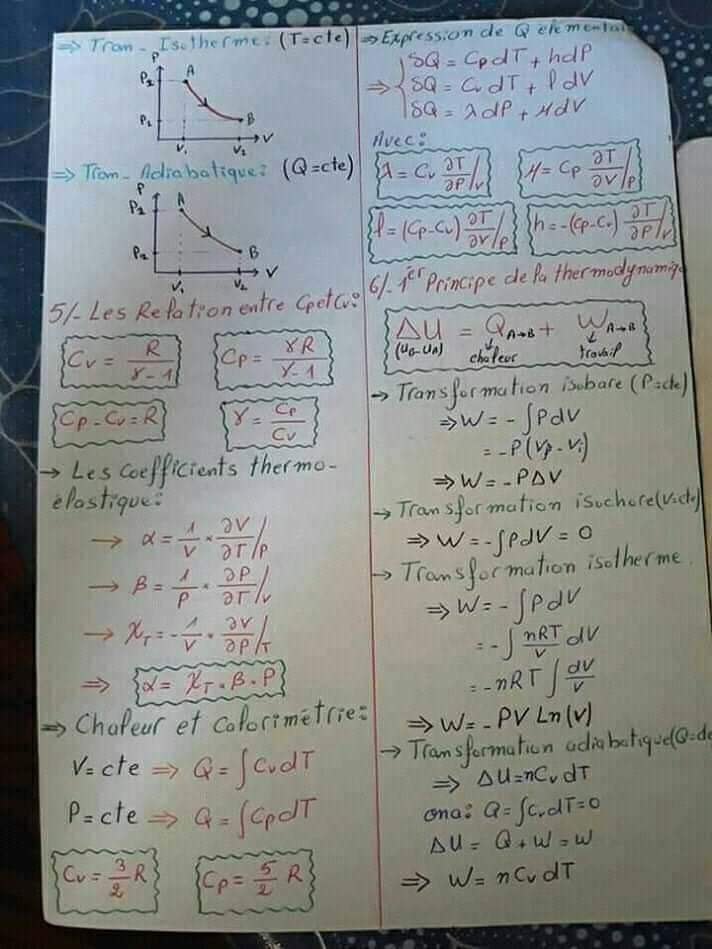 ⇒ Tran - Isotherme: (T=cte)
P
P₂ A
P₁ B
V₁ V₂ V
⇒ Tran - Adiabatique: (Q=cte)
P
P₂ A
P₂ B
V₁ V₂ V
5/- Les Relation entre Cp et Cv:
Cv = R/(γ-1) Cp = γR/(γ-1)
Cp - Cv = R γ = Cp/Cv
→ Les coefficients thermo-
élastique:
→ α = 1/V × ∂V/∂T/P
→ β = 1/P × ∂P/∂T/V
→ χT = -1/V × ∂V/∂P/T
⇒ α = χT × β × P
⇒ Chaleur et calorimétrie:
V = cte ⇒ Q = ∫CvdT
P = cte ⇒ Q = ∫CpdT
Cv = 3/2 R Cp = 5/2 R
⇒ Expression de Q
δQ = CpdT + hdP
⇒ δQ = CvdT + ldV
δQ = λdP + μdV
Avec:
λ = Cv ∂T/∂P/V μ = Cp ∂T/∂V/P
l = (Cp-Cv) ∂T/∂V/P h = -(Cp-Cv) ∂T/∂P/V
6/- 1er Principe de la thermodynamiq
ΔU = QA→B + WA→B
(UB-UA) chaleur travail
→ Transformation isobare (P=cte)
⇒ W = - ∫PdV
= -P(Vf - Vi)
⇒ W = -PΔV
→ Transformation isochore (V=cte)
⇒ W = -∫PdV = 0
→ Transformation isotherme
⇒ W = - ∫PdV
= - ∫ nRT/V dV
= -nRT ∫ dV/V
⇒ W = -PV Ln(V)
→ Transformation adiabatique (Q=
⇒ ΔU = nCvdT
ona: Q = ∫CvdT = 0
ΔU = Q + W = W
⇒ W = nCvdT